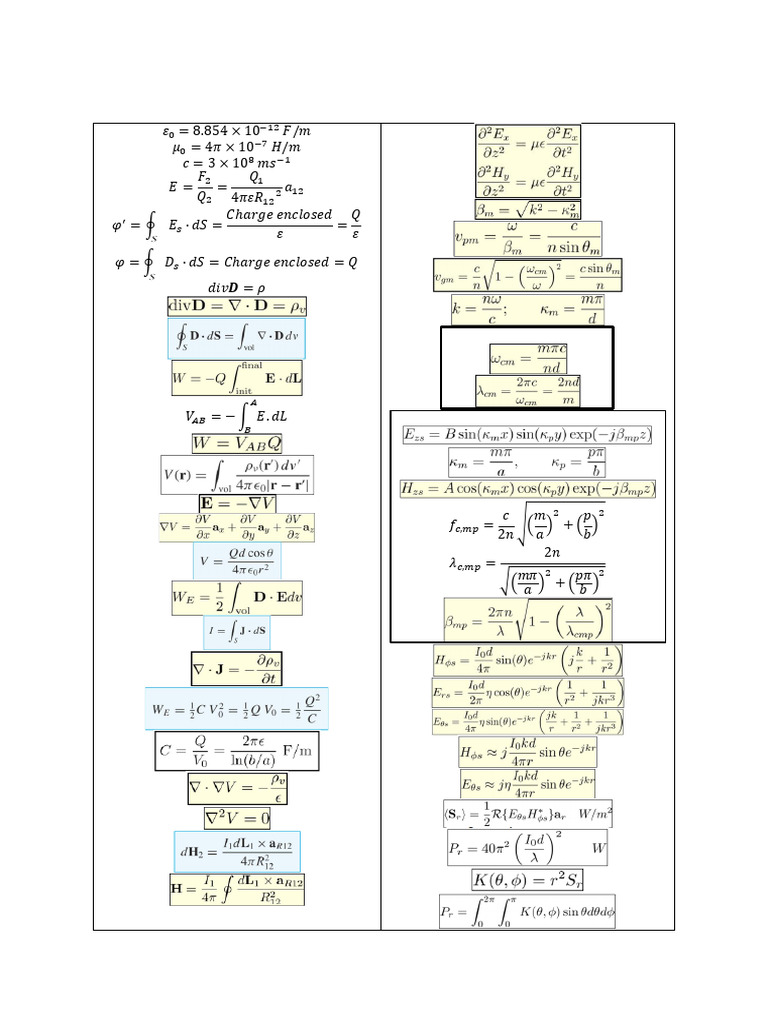 ε₀ = 8.854 × 10⁻¹² F/m
μ₀ = 4π × 10⁻⁷ H/m
c = 3 × 10⁸ ms⁻¹
E = F₂/Q₂ = Q₁/(4πεR₁₂²) a₁₂
φ′ = ∮_S E_s · dS = Charge enclosed/ε = Q/ε
φ = ∮_S D_s · dS = Charge enclosed = Q
div𝑫 = ρ
div𝐃 = ∇ · 𝐃 = ρ_v
∮_S 𝐃 · d𝐒 = ∫_vol ∇ · 𝐃 dv
W = −Q ∫_init^final 𝐄 · d𝐋
V_AB = − ∫_B^A E.dL
W = V_AB Q
V(𝐫) = ∫_vol ρ_v(𝐫′) dv′/(4πϵ₀|𝐫 − 𝐫′|)
𝐄 = −∇V
∇V = ∂V/∂x 𝐚_x + ∂V/∂y 𝐚_y + ∂V/∂z 𝐚_z
V = Qd cos θ/(4πϵ₀r²)
W_E = 1/2 ∫_vol 𝐃 · 𝐄dv
I = ∫_S 𝐉 · d𝐒
∇ · 𝐉 = −∂ρ_v/∂t
W_E = ½ C V₀² = ½ Q V₀ = ½ Q²/C
C = Q/V₀ = 2πϵ/ln(b/a) F/m
∇ · ∇V = −ρ_v/ϵ
∇²V = 0
d𝐇₂ = I₁d𝐋₁ × 𝐚_R12/(4πR₁₂²)
𝐇 = I₁/4π ∮ d𝐋₁ × 𝐚_R12/R₁₂²
∂²E_x/∂z² = μϵ ∂²E_x/∂t²
∂²H_y/∂z² = μϵ ∂²H_y/∂t²
β_m = √(k² − κ_m²)
v_pm = ω/β_m = c/(n sin θ_m)
v_gm = c/n √(1 − (ω_cm/ω)²) = c sin θ_m/n
k = nω/c; κ_m = mπ/d
ω_cm = mπc/nd
λ_cm = 2πc/ω_cm = 2nd/m
E_zs = B sin(κ_m x) sin(κ_p y) exp(−jβ_mp z)
κ_m = mπ/a, κ_p = pπ/b
H_zs = A cos(κ_m x) cos(κ_p y) exp(−jβ_mp z)
f_c,mp = c/2n √((m/a)² + (p/b)²)
λ_c,mp = 2n/√((mπ/a)² + (pπ/b)²)
β_mp = 2πn/λ √(1 − (λ/λ_cmp)²)
H_ϕs = I₀d/4π sin(θ)e^(−jkr) (j k/r + 1/r²)
E_rs = I₀d/2π η cos(θ)e^(−jkr) (1/r² + 1/jkr³)
E_θs = I₀d/4π η sin(θ)e^(−jkr) (jk/r + 1/r² + 1/jkr³)
H_ϕs ≈ j I₀kd/4πr sin θe^(−jkr)
E_θs ≈ jη I₀kd/4πr sin θe^(−jkr)
⟨𝐒_r⟩ = 1/2 ℛ{E_θs H*_ϕs}𝐚_r W/m²
P_r = 40π² (I₀d/λ)² W
K(θ, ϕ) = r²S_r
P_r = ∫₀^2π ∫₀^π K(θ, ϕ) sin θdθdϕ